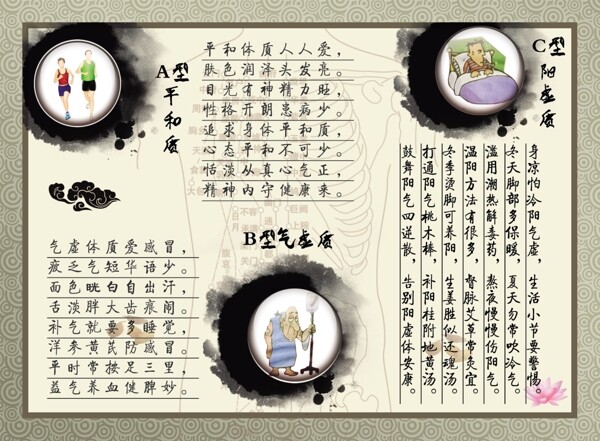 A型
平和质
平和体质人人爱，
肤色润泽头发亮。
目光有神精力旺，
性格开朗患病少。
追求身体平和质，
心态平和不可少。
恬淡从真心气正，
精神内守健康来。
C型
阳虚质
身凉怕冷阳气虚，生活小节要警惕。
冬天脚部多保暖，夏天勿常吹冷气。
滥用潮热解毒药，熬夜慢慢伤阳气。
温阳方法有很多，督脉艾草常灸宜。
冬季烫脚可养阳，生姜胜似还魂汤。
打通阳气桃木棒，补阳桂附地黄汤。
鼓舞阳气四逆散，告别阳虚体安康。
B型气虚质
气虚体质爱感冒，
疲乏气短华语少。
面色晄白自出汗，
舌淡胖大齿痕阔。
补气就要多睡觉，
洋参黄芪防感冒。
平时常按足三里，
益气养血健脾妙。